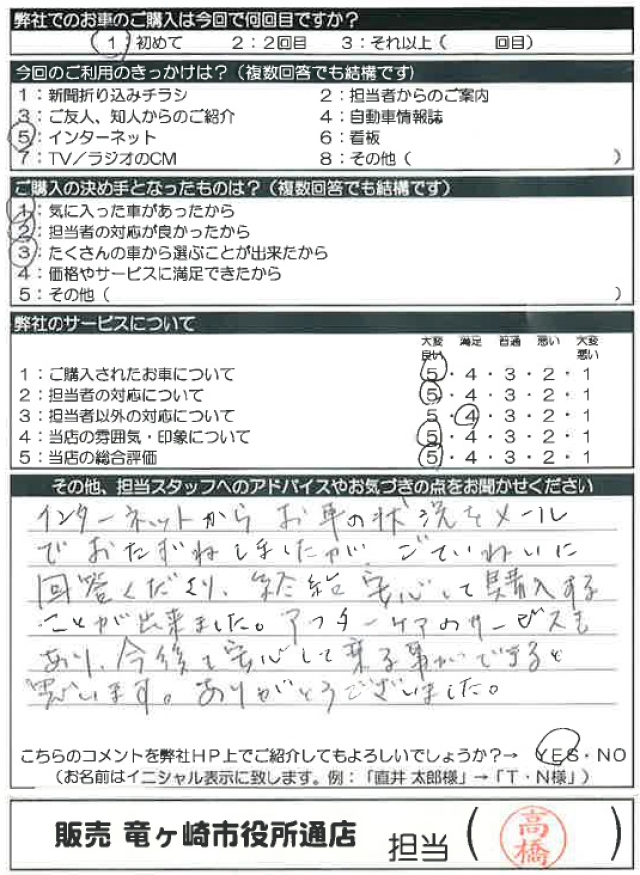 弊社でのお車のご購入は今回で何回目ですか？
1：初めて　2：2回目　3：それ以上（　　回目）
今回のご利用のきっかけは？（複数回答でも結構です）
1：新聞折り込みチラシ　2：担当者からのご案内
3：ご友人、知人からのご紹介　4：自動車情報誌
5：インターネット　6：看板
7：TV／ラジオのCM　8：その他（　　）
ご購入の決め手となったものは？（複数回答でも結構です）
1：気に入った車があったから
2：担当者の対応が良かったから
3：たくさんの車から選ぶことが出来たから
4：価格やサービスに満足できたから
5：その他（　　）
弊社のサービスについて
大変良い　満足　普通　悪い　大変悪い
1：ご購入されたお車について　5・4・3・2・1
2：担当者の対応について　5・4・3・2・1
3：担当者以外の対応について　5・4・3・2・1
4：当店の雰囲気・印象について　5・4・3・2・1
5：当店の総合評価　5・4・3・2・1
その他、担当スタッフへのアドバイスやお気づきの点をお聞かせください
インターネットから お車の状況をメール
で おたずねしましたが ごていねいに
回答くださり、安心して購入する
ことが出来ました。アフターケアのサービスも
あり、今後も安心して乗る事ができると
思います。ありがとうございました。
こちらのコメントを弊社HP上でご紹介してもよろしいでしょうか？→ YES・NO
（お名前はイニシャル表示に致します。例：「直井 太郎様」→「T・N様」）
販売 竜ヶ崎市役所通店　担当（高橋）